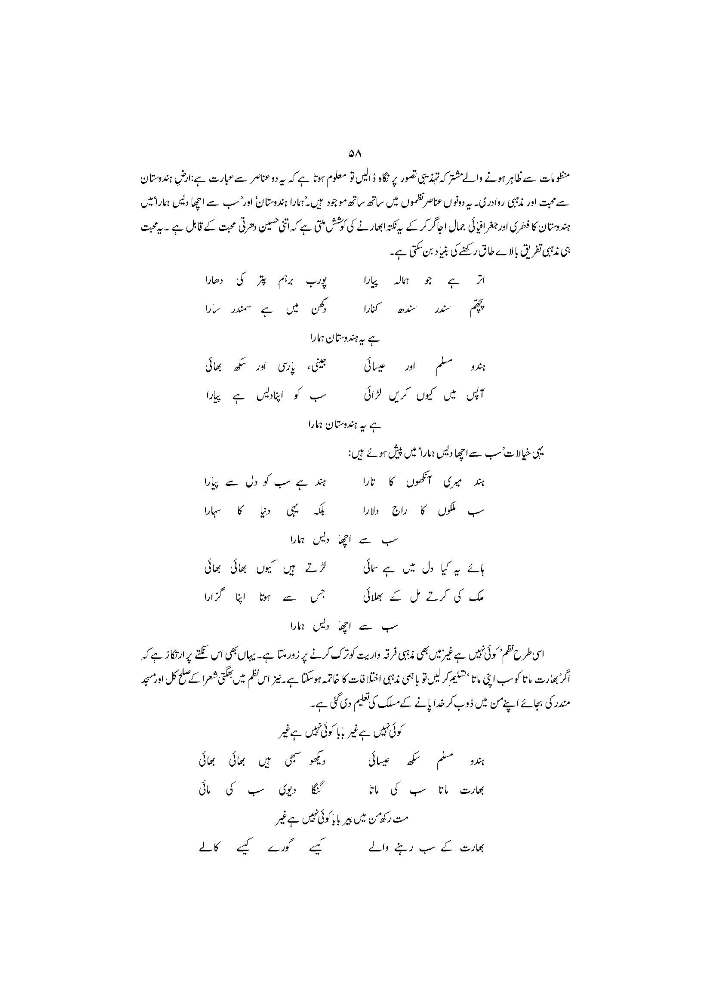 ۵۸
منظومات سے ظاہر ہونے والے مشترکہ تہذیبی تصور پر نگاہ ڈالیں تو معلوم ہوتا ہے کہ یہ دو عناصر سے عبارت ہے: ارضِ ہندوستان
سے محبت اور مذہبی رواداری۔ یہ دونوں عناصر نظموں میں ساتھ ساتھ موجود ہیں۔ 'ہمارا ہندوستان' اور 'سب سے اچھا دیس ہمارا' میں
ہندوستان کا فطری اور جغرافیائی جمال اجاگر کر کے یہ نکتہ ابھارنے کی کوشش ملتی ہے کہ اتنی حسین دھرتی محبت کے قابل ہے۔ یہ محبت
ہی مذہبی تفریق بالائے طاق رکھنے کی بنیاد بن سکتی ہے۔
اتر ہے جو ہمالہ پیارا پورب برہم پتر کی دھارا
پچھم سندر سندھ کنارا دکھن میں ہے سمندر سارا
ہے یہ ہندوستان ہمارا
ہندو مسلم اور عیسائی جینی، پارسی اور سکھ بھائی
آپس میں کیوں کریں لڑائی سب کو اپنا دیس ہے پیارا
ہے یہ ہندوستان ہمارا
یہی خیالات 'سب سے اچھا دیس ہمارا' میں پیش ہوئے ہیں:
ہند میری آنکھوں کا تارا ہند ہے سب کو دل سے پیارا
سب ملکوں کا راج دلارا بلکہ یہی دنیا کا سہارا
سب سے اچھا دیس ہمارا
ہائے یہ کیا دل میں ہے سمائی لڑتے ہیں کیوں بھائی بھائی
ملک کی کرتے مل کے بھلائی جس سے ہوتا اپنا گزارا
سب سے اچھا دیس ہمارا
اسی طرح نظم 'کوئی نہیں ہے غیر' میں بھی مذہبی فرقہ واریت کو ترک کرنے پر زور ملتا ہے۔ یہاں بھی اس نکتے پر ارتکاز ہے کہ
اگر 'بھارت ماتا کو سب اپنی ماتا' تسلیم کر لیں تو باہمی مذہبی اختلافات کا خاتمہ ہو سکتا ہے۔ نیز اس نظم میں بھگتی شعرا کے صلح کل اور مسجد
مندر کی بجائے اپنے من میں ڈوب کر خدا پانے کے مسلک کی تعلیم دی گئی ہے۔
کوئی نہیں ہے غیر بابا کوئی نہیں ہے غیر
ہندو مسلم سکھ عیسائی دیکھو سبھی ہیں بھائی بھائی
بھارت ماتا سب کی ماتا گنگا دیوی سب کی مائی
مت رکھ من میں بیر بابا کوئی نہیں ہے غیر
بھارت کے سب رہنے والے کیسے گورے کیسے کالے